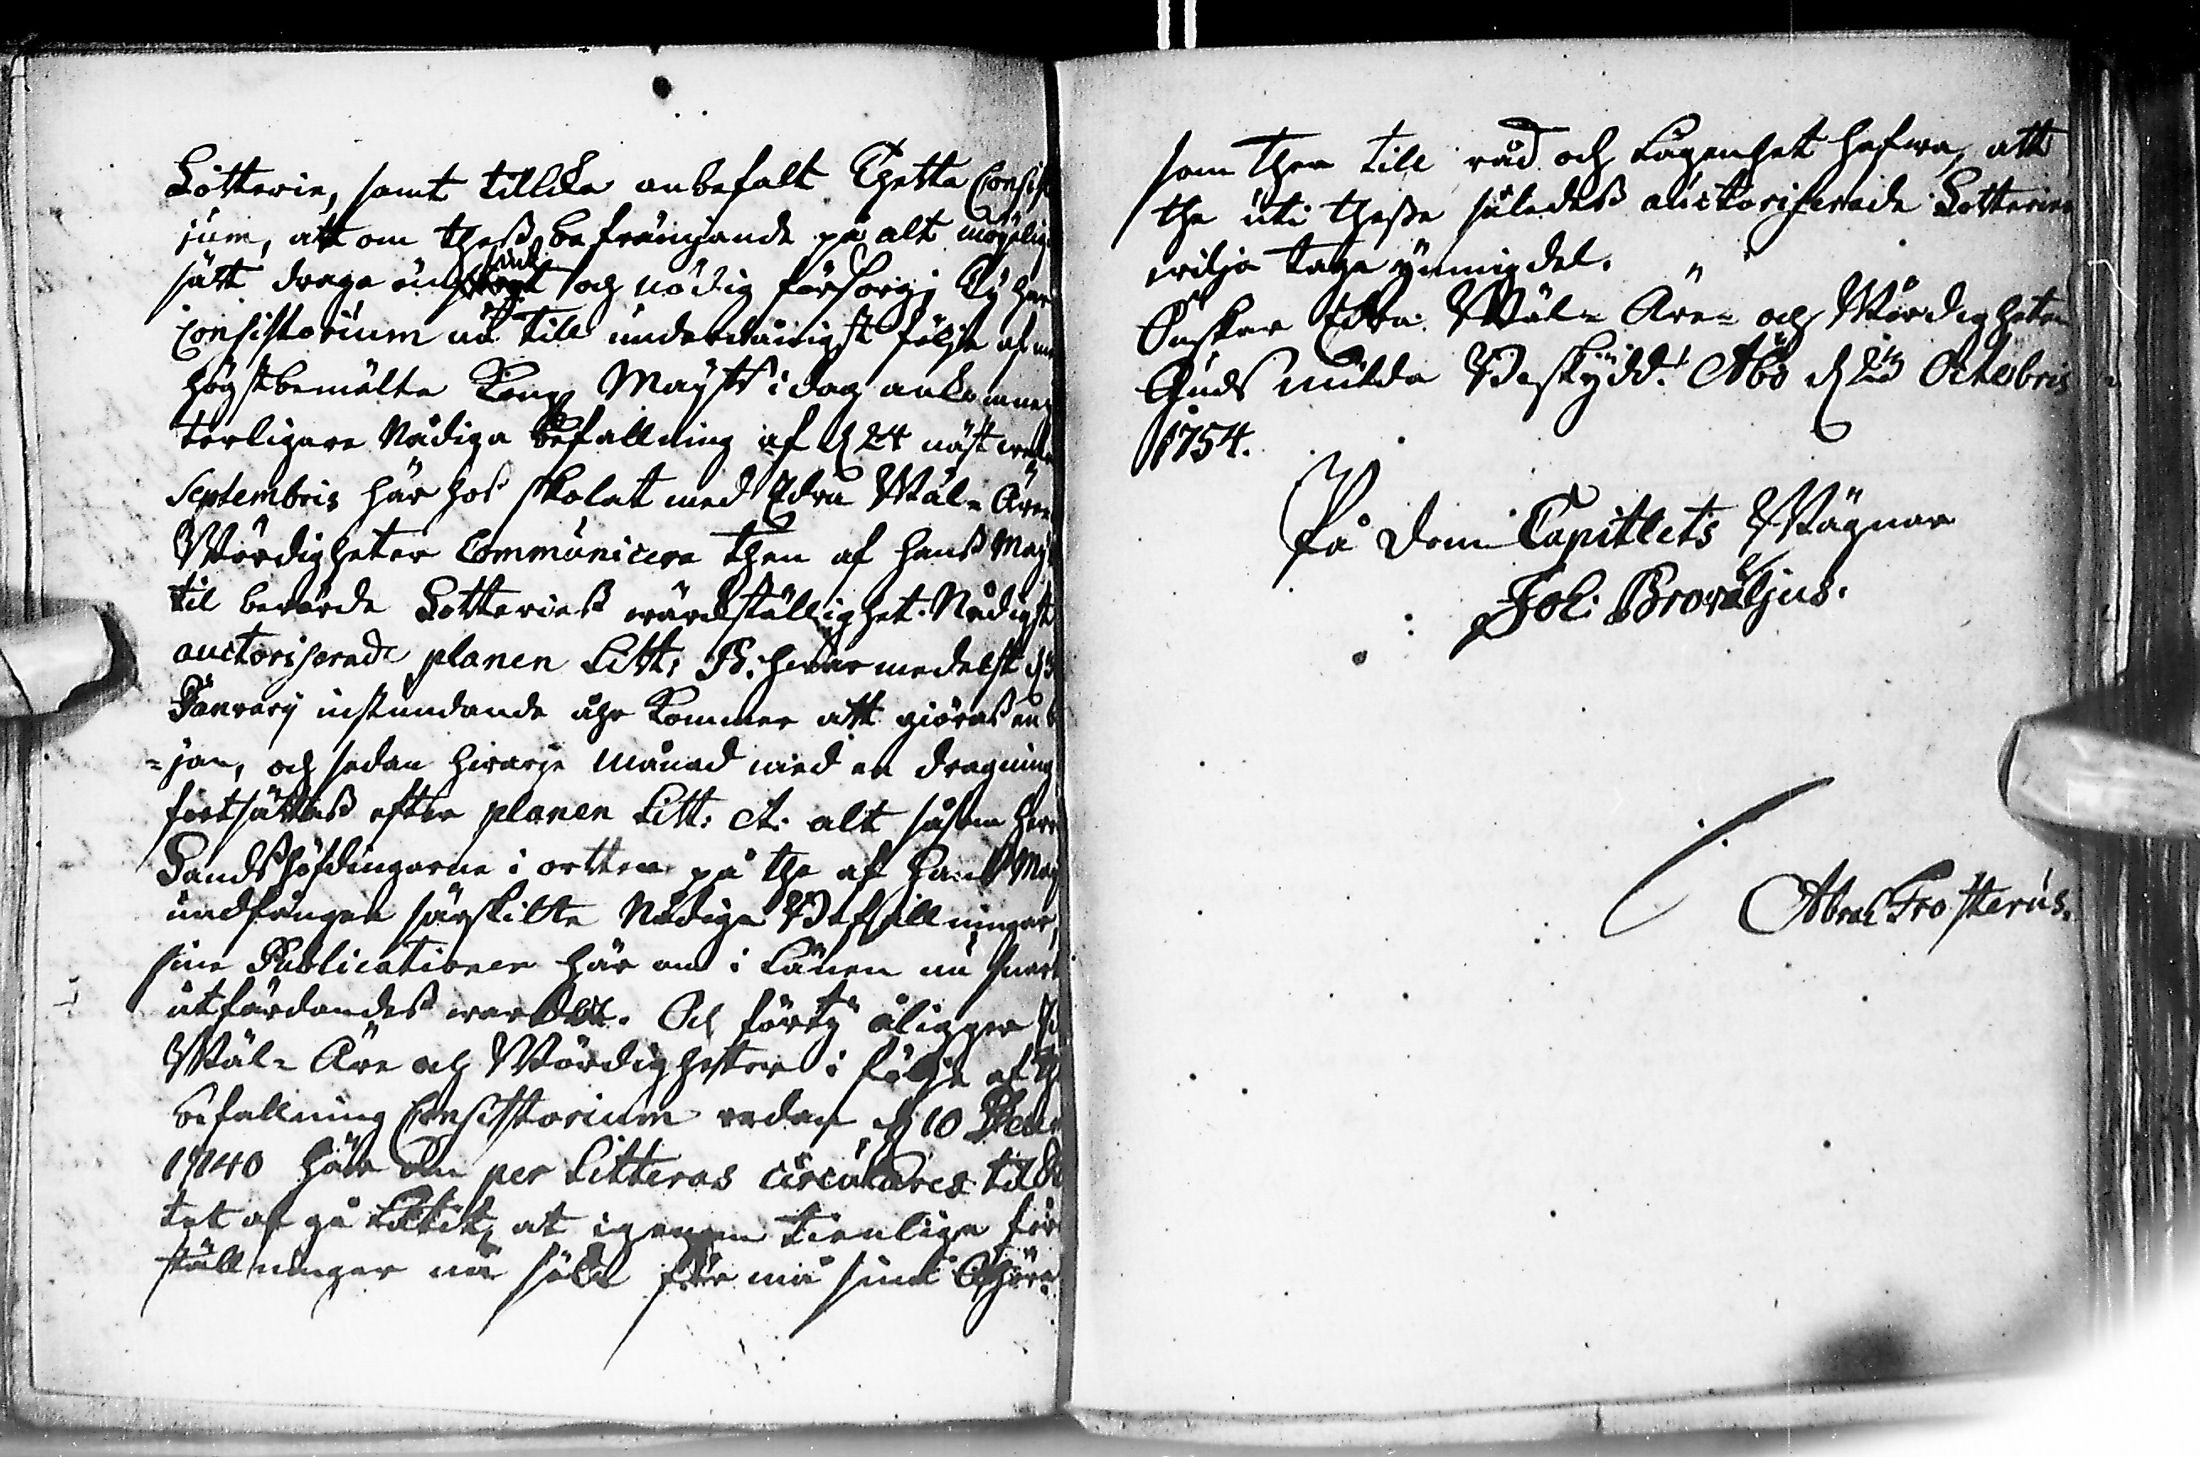 Lotterie, samt tillika anbefalt thetta Consist
jum, att om thess befrämjande på alt möjelig
sätt draga ömsint och nödig försorg; Ty har
Consistorium nu till underdånigst följe af
högstbemälte Kongl Mayts i dag ankomne
terligare Nådiga befallning af d 24 näst
Septembris här hos skolat med Edra Wäl- Äre
Wördigheter Communicera then af Hans May
til berörde Lotteriess wärckställighet Nådigst
auctoriserade planen Litt: B. hwarmedelst d
Januarij instundande åhr kommer att giörass en b
=jan, och sedan hwarje månad med en dragning
fortsättass efter planen Litt: A. alt såsom Herr
Landshöfdingarne i orten på the af Hans May
undfångne särskilte Nådige Befallningar,
sine Publicationer här om i Länen nu snart
utfärdandess warda. Och förty åligger Ed
Wäl- Äre och Wördigheter i följe af th
befallning Consistorium redan d 10
1740 här om per Litteras circulares til
tet af gå låtit, at igenom tienlige före
ställningar nu såle för må sine Åhöra
som ther till råd och Lägenhet hafwa, att
the uti thesse således auctoriserade Lotterier
wilja taga ymnig del.
Önskar Edra Wäl- Äre- och Wördigheter
Guds milda Beskydd. Åbo d 23 Octobris
1754.
På Dom Capitlets Wägnar
Joh: Browaljus.
Abrah Frosterus.